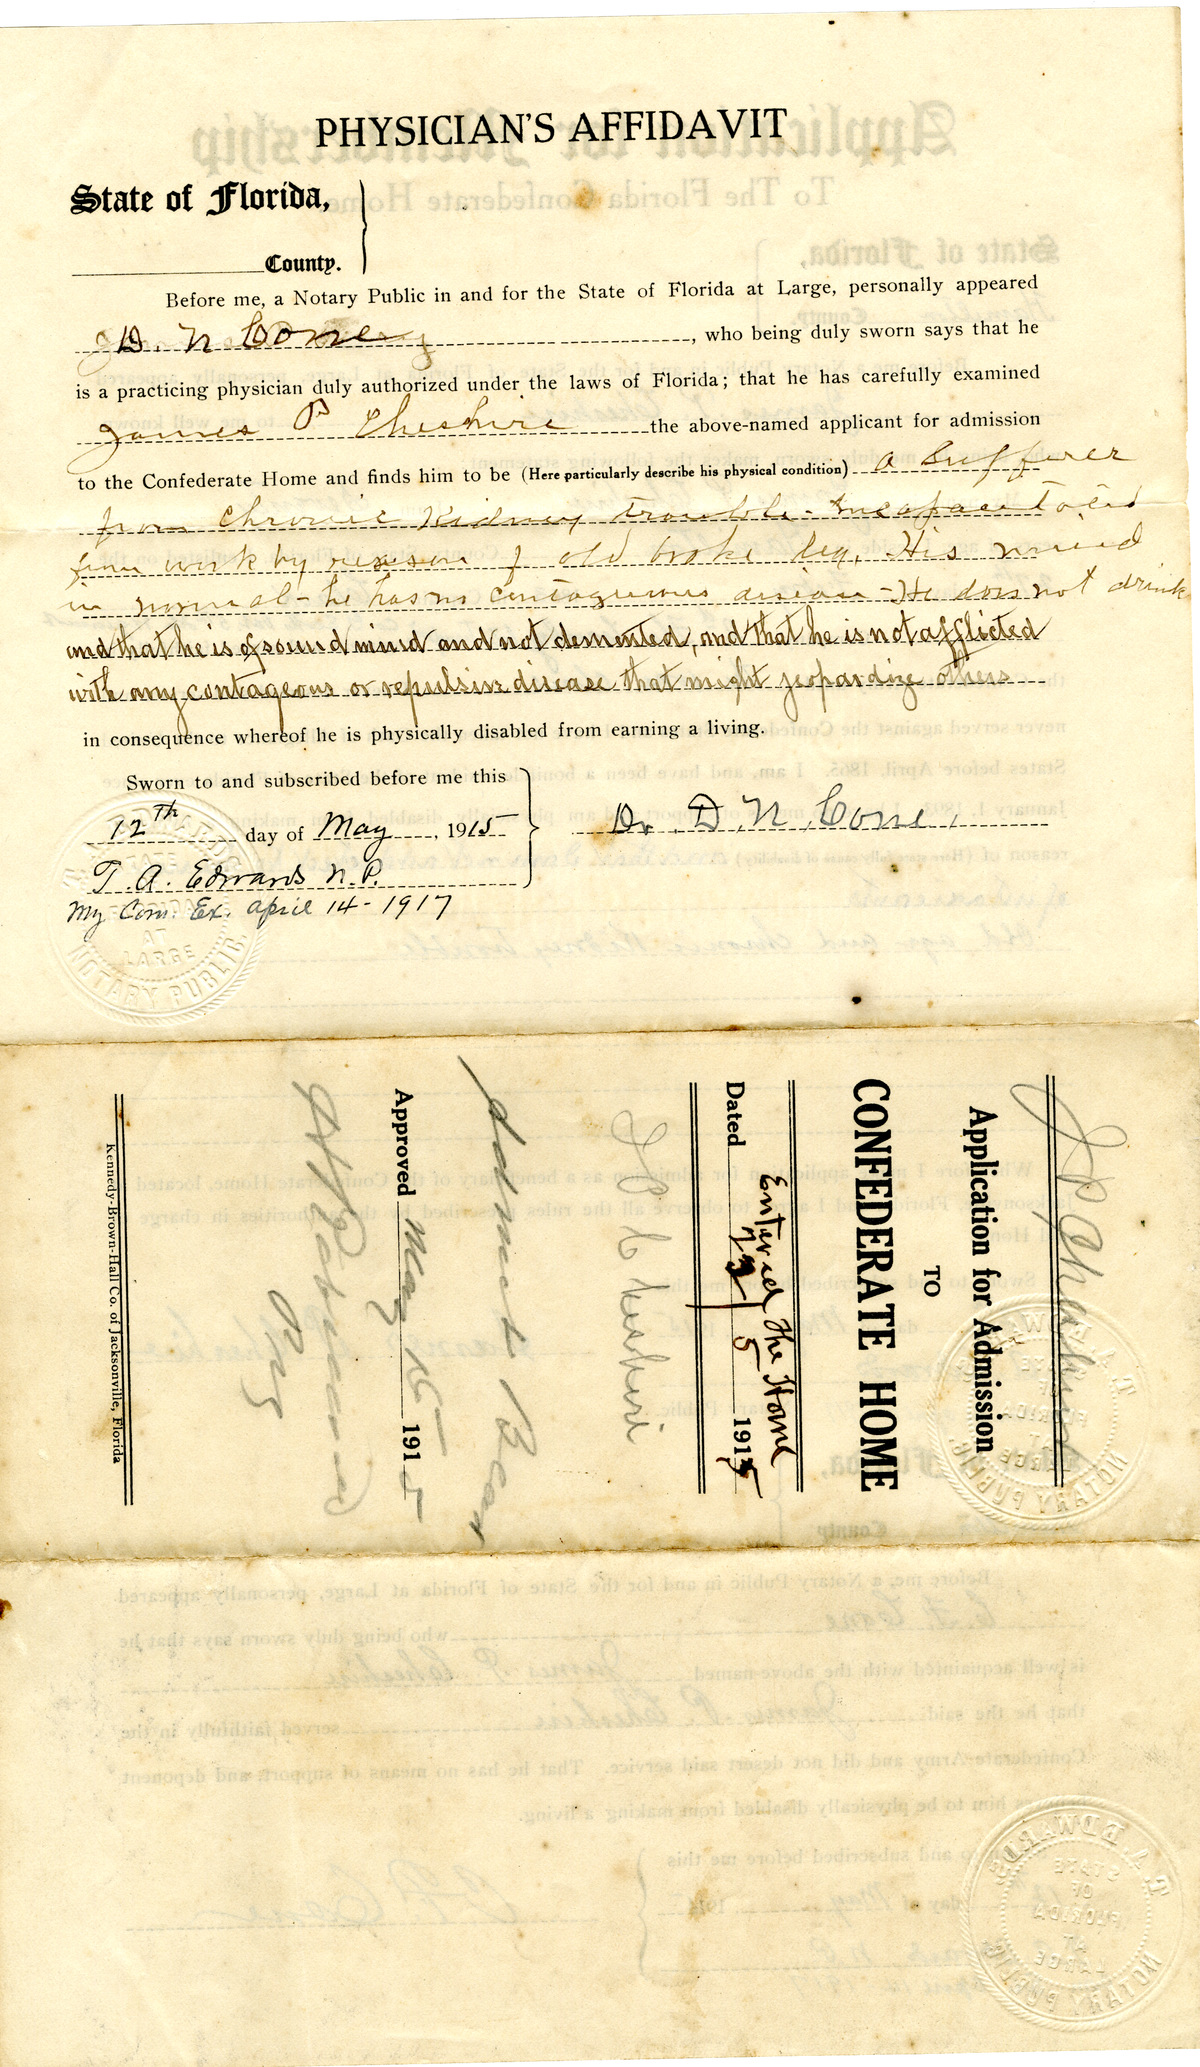 PHYSICIAN'S AFFIDAVIT
State of Florida,
County.
Before me, a Notary Public in and for the State of Florida at Large, personally appeared
D. N Cone, who being duly sworn says that he
is a practicing physician duly authorized under the laws of Florida; that he has carefully examined
James P Cheshire the above-named applicant for admission
to the Confederate Home and finds him to be (Here particularly describe his physical condition) a Sufferer
from Chronic Kidney trouble - Incapacitated
from work by reason of old broke leg, His mind
is normal - he has no contageous disease - He does not drink
and that he is of sound mind and not demented, and that he is not afflicted
with any contageous or repulsive disease that might jeopardize others
in consequence whereof he is physically disabled from earning a living.
Sworn to and subscribed before me this
12th day of May, 1915
Dr. D. N. Cone,
T. A. Edwards N. P.
My Com. Ex. April 14 - 1917
T. A. EDWARDS
STATE OF FLORIDA AT LARGE
NOTARY PUBLIC.
J P Cheshire
Application for Admission
TO
CONFEDERATE HOME
Entered the Home
Dated 1915
J P Cheshire
Admit
Approved May 1915
Kennedy-Brown-Hall Co. of Jacksonville, Florida